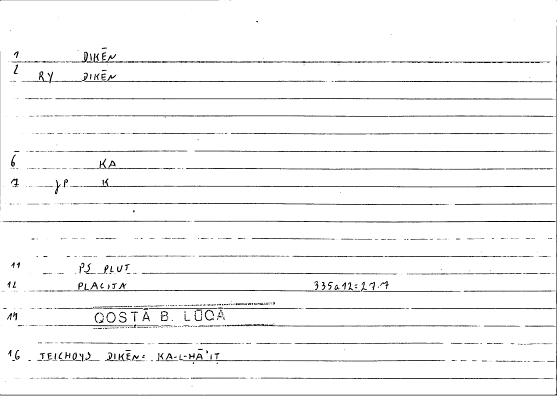 1 DIKĒN
2 RY DIKĒN
6 KA
7 JP K
11 PS PLUT
12 PLACITA 335a12=27.7
14 QOSṬĀ B. LŪQĀ
16 TEICHOYS DIKĒN= KA-L-ḤĀ'IṬ